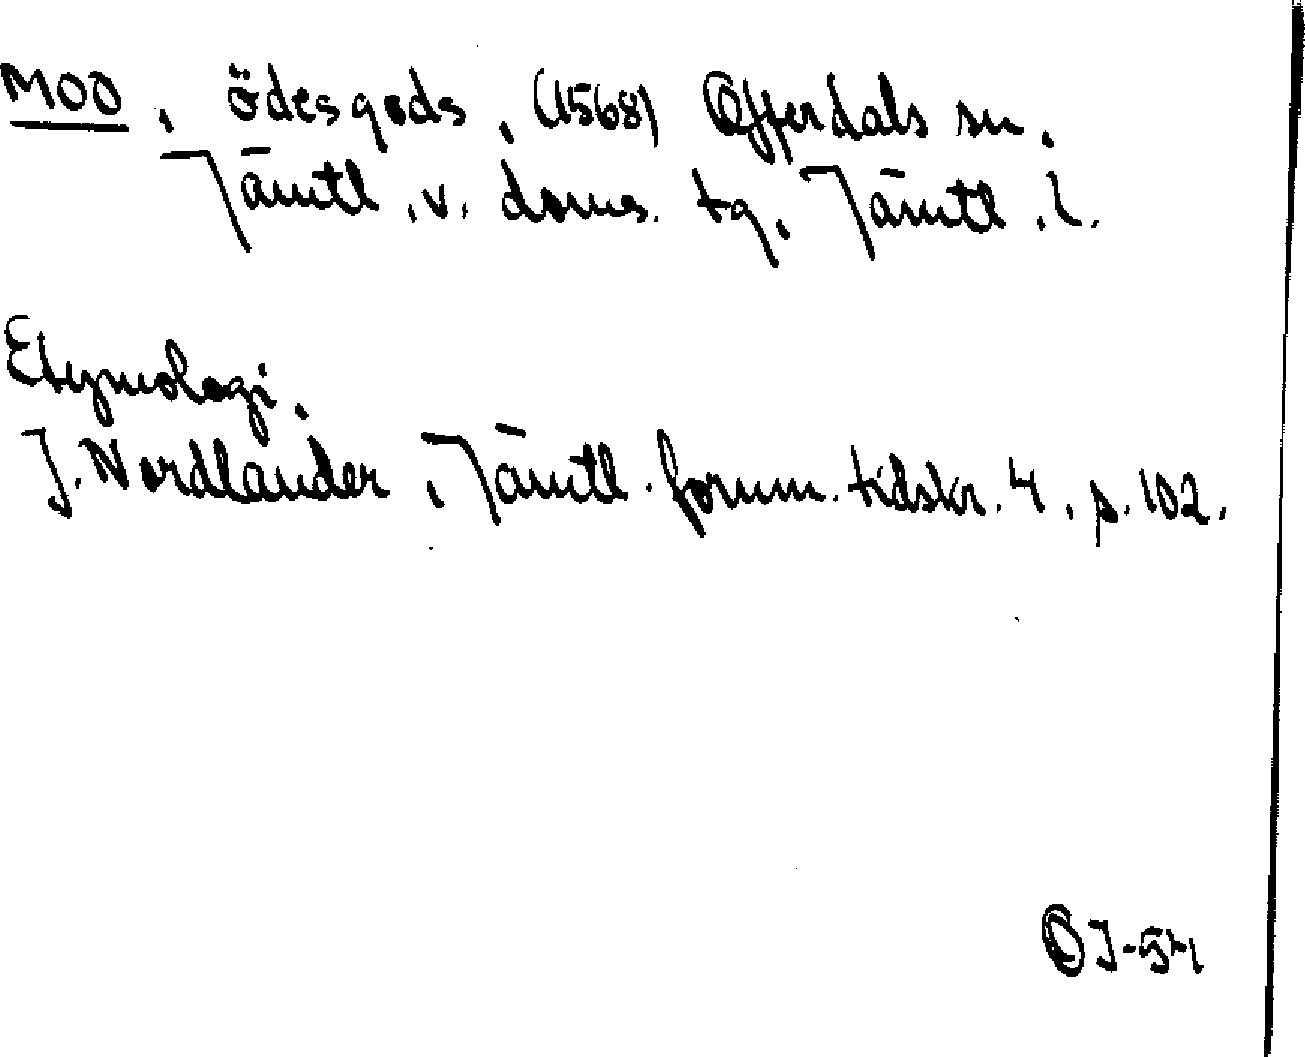 MOO, ödesgods, (1568) Offerdals sn.
Jämtl. v. doms. tg. Jämtl. l.
Etymologi.
J. Nordlander, Jämtl. fornm. tidskr. 4, s. 102.
OJ-54